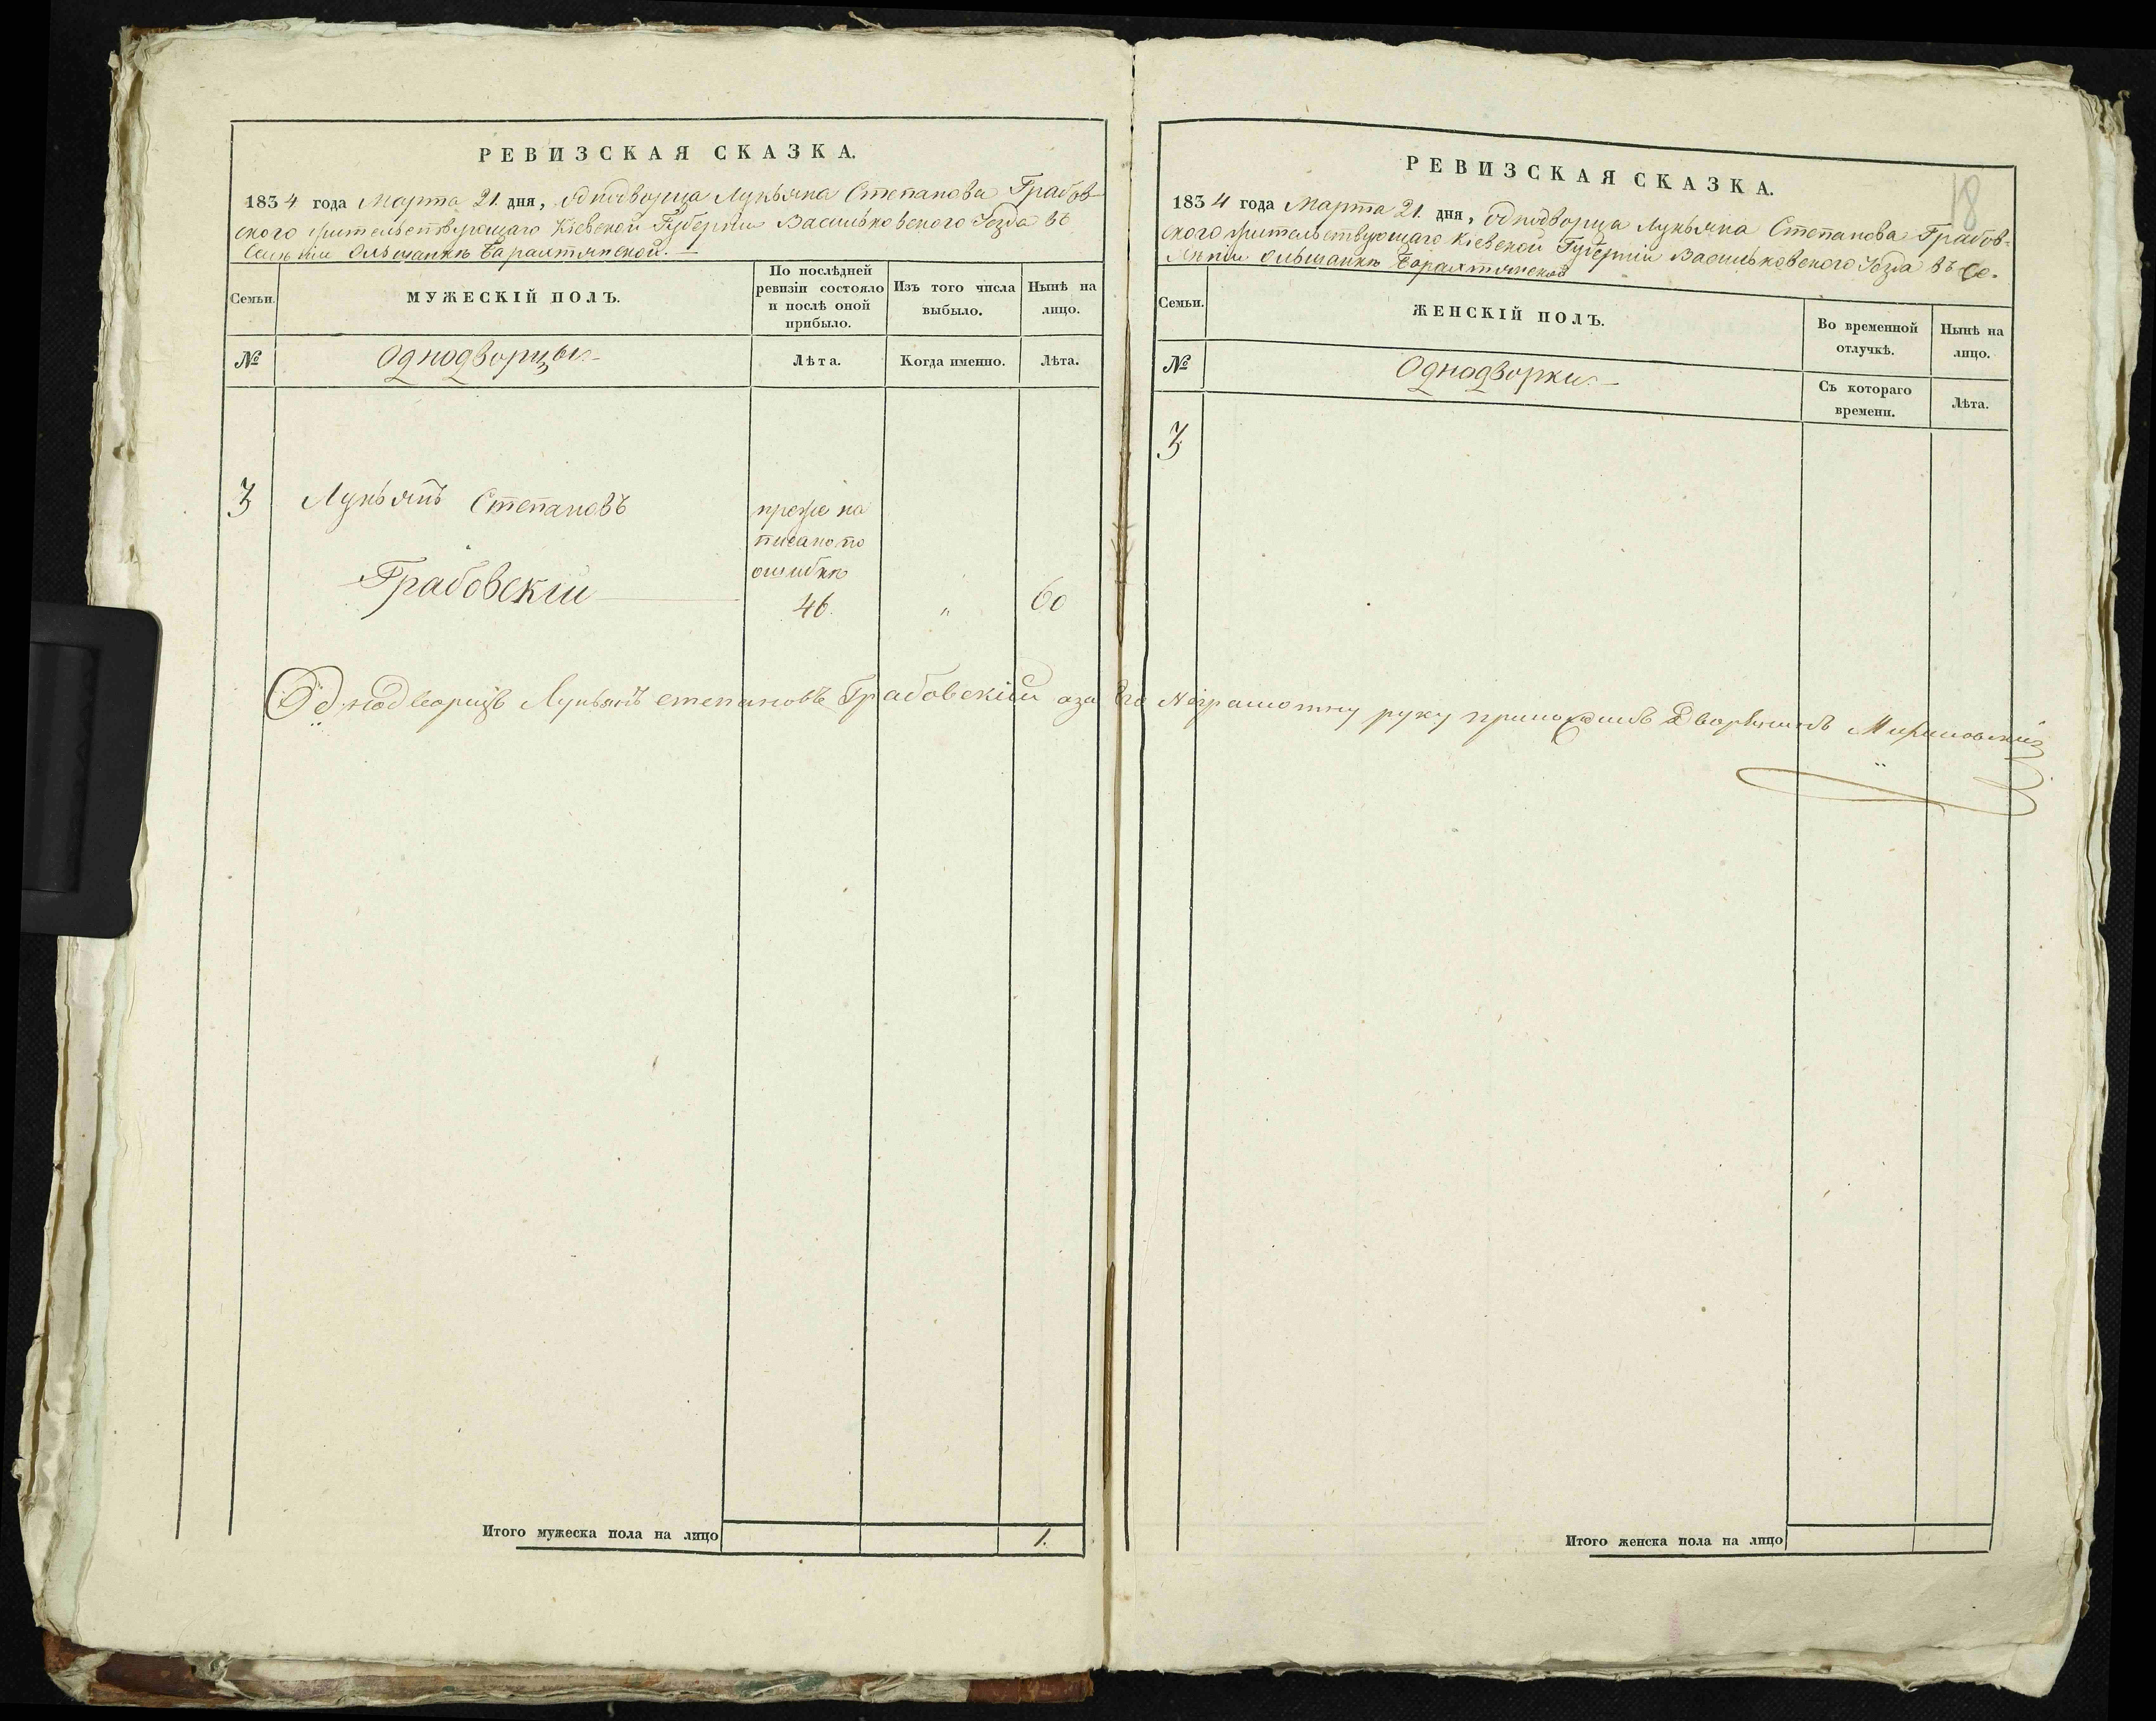 РЕВИЗСКАЯ СКАЗКА.
1834 года Марта 21. дня, однодворца Лукьяна Степанова Грабов-
ского жительствующаго Кіевской Губерніи Васильковского Уезда въ
Селеніи Ольшанкѣ Барахтянской.
Семьи.
МУЖЕСКІЙ ПОЛЪ.
По послѣдней ревизіи состояло и послѣ оной прибыло.
Изъ того числа выбыло.
Нынѣ на лицо.
№
Однодворцы
Лѣта.
Когда именно.
Лѣта.
3
Лукьянъ Степановъ
Грабовскій
преже на
писано по
ошибкѣ
46.
"
60
Однодворицъ Лукьянъ степановъ Грабовскій аза его Неграмотну руку приложилъ Дворянинъ
Итого мужеска пола на лицо
1.
18
РЕВИЗСКАЯ СКАЗКА.
1834 года Марта 21. дня, однодворца Лукьяна Степанова Грабов-
ского жительствующаго Кіевской Губерніи Васильковского Уезда въ Се-
леніи Ольшанкѣ Барахтянской
Семьи.
ЖЕНСКІЙ ПОЛЪ.
Во временной отлучкѣ.
Нынѣ на лицо.
№
Однодворки
Съ котораго времени.
Лѣта.
3
Итого женска пола на лицо